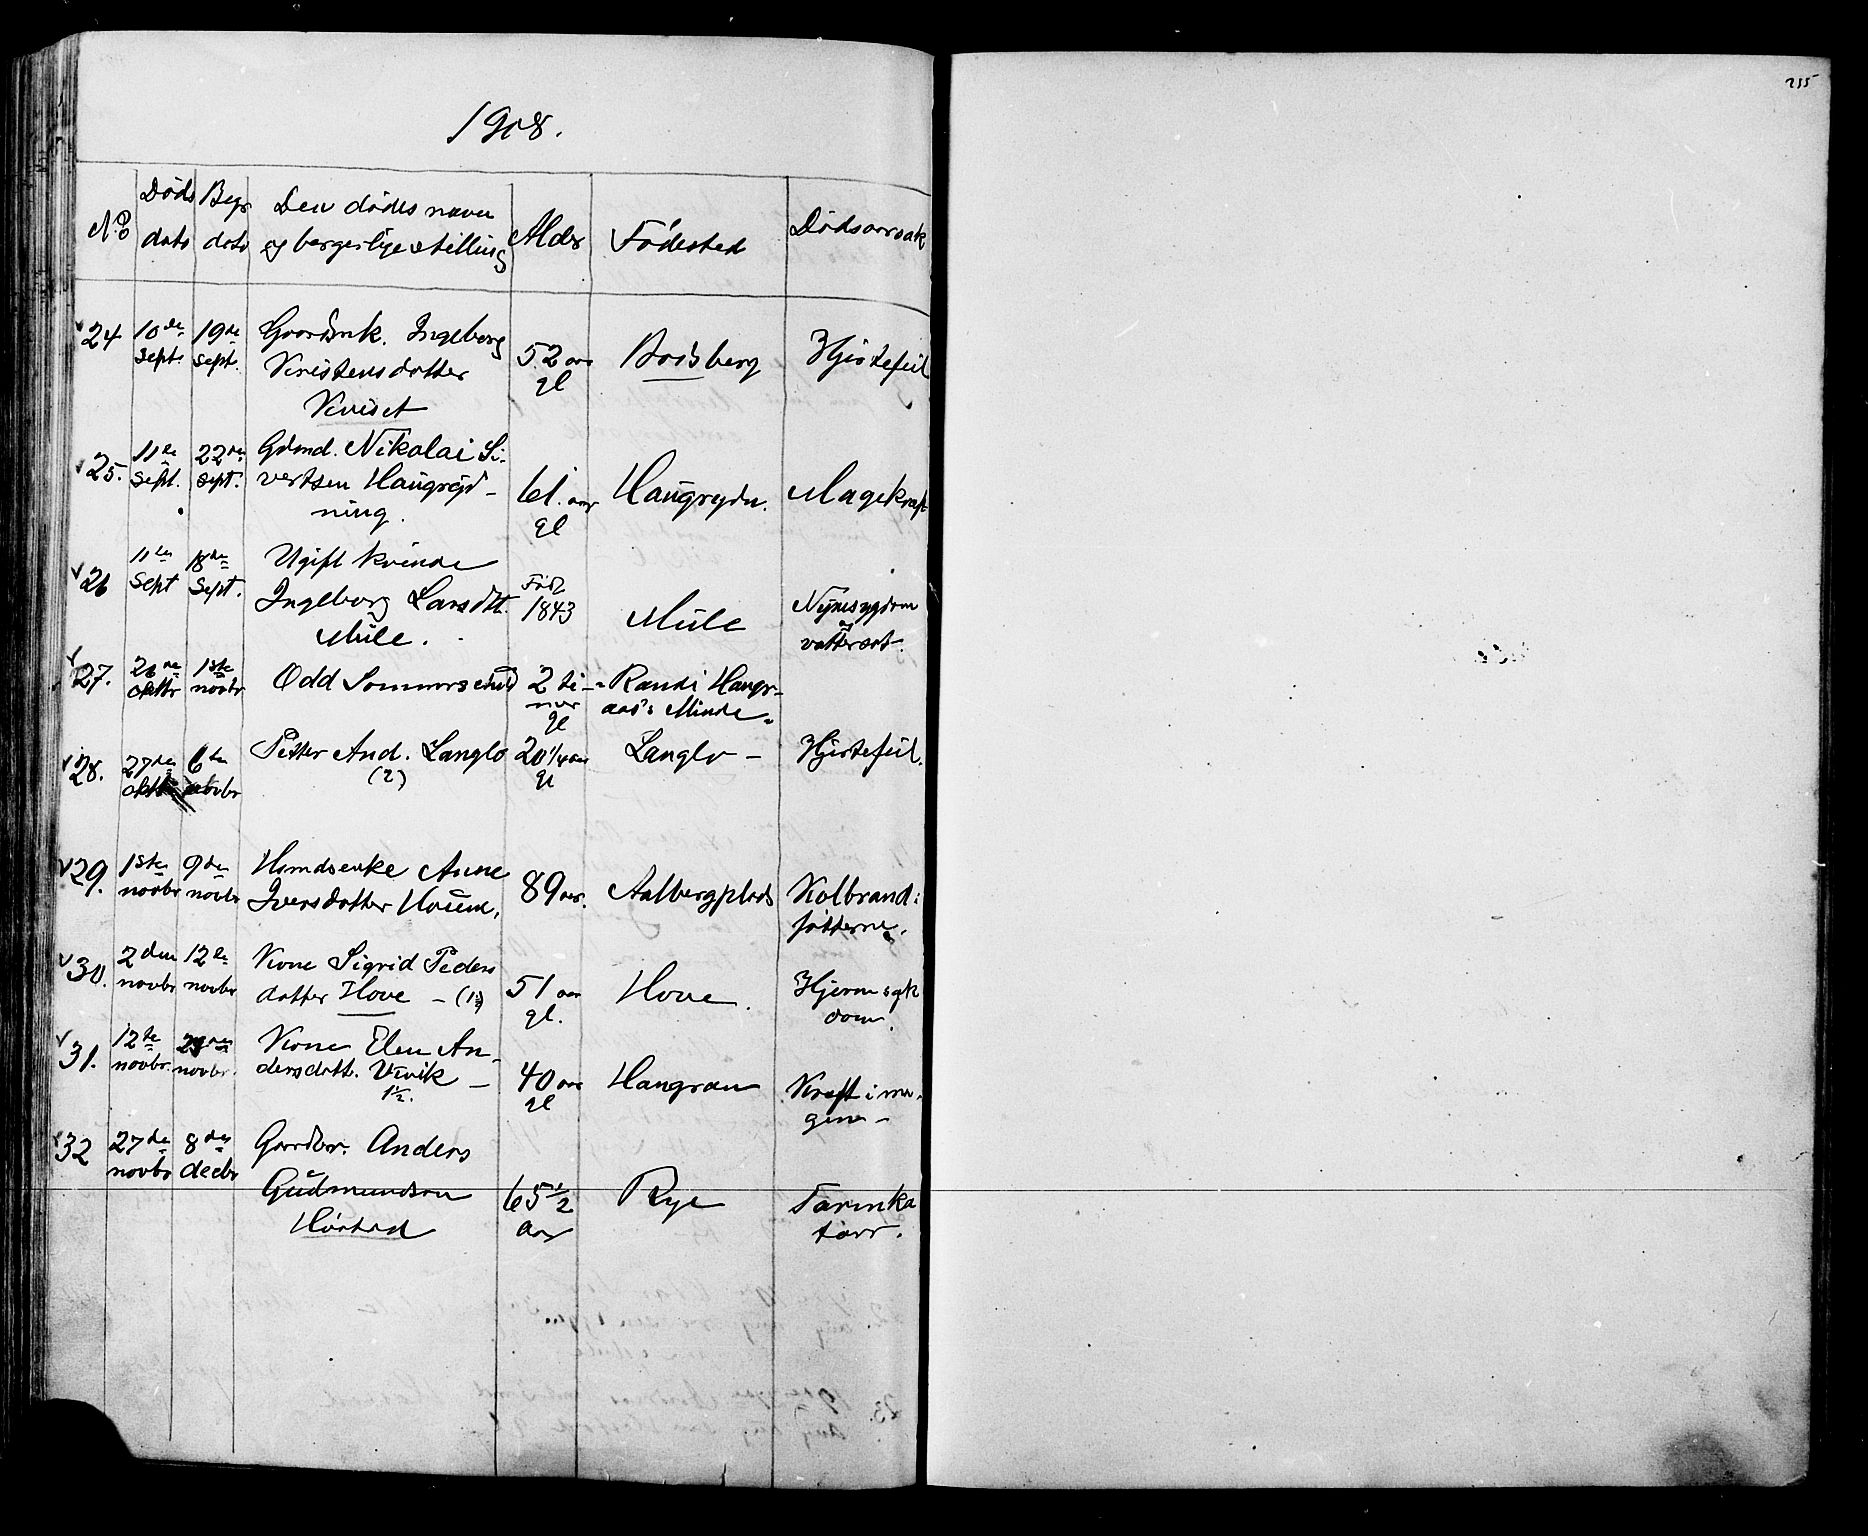 255
1908.
No Døds dato Begr dato Den dødes navn og borgerlige stilling Alder Fødested Dødsaarsak
24 10de sept. 19de sept. Ingeborg
Kristensdatter 52 aar gl Hjertefeil
Kviset
25. 11te sept. 22de sept. Gdmd. Nikolai Si-
vertsen Haugrød- 61 aar gl Haugrydn. Magekræft
ning.
26 11te sept 18de sept. Ugift kvinde
Ingeborg Larsdtt. Født 1843 Mule Nyresygdom og vattersot.
Mule.
27. 26de oktbr 1ste novbr Odd Sommerschild 2 ti- Randi Haugr-
mer gl aas's Minde.
28. 27de oktbr 6te novbr Petter And. Langlo 20 1/4 aar gl Langlo – Hjertefeil.
(2)
29. 1ste novbr 9de novbr Anne
Iversdatter 89 aar. Aalbergplads Kolbrand i
føtterne.
30. 2den novbr 12te novbr Kone Sigrid Peders
datter Hove – 51 aar gl. Hove. Hjernesyk
dom.
31. 12te novbr. novbr. Kone Elen An-
dersdatt. Vivik – 40 aar gl Kræft i ma-
1 1/2. gen –
32 27de novbr 8de decbr Anders
Gudmundsen 65 1/2 aar Rye Tarmka
tarr.